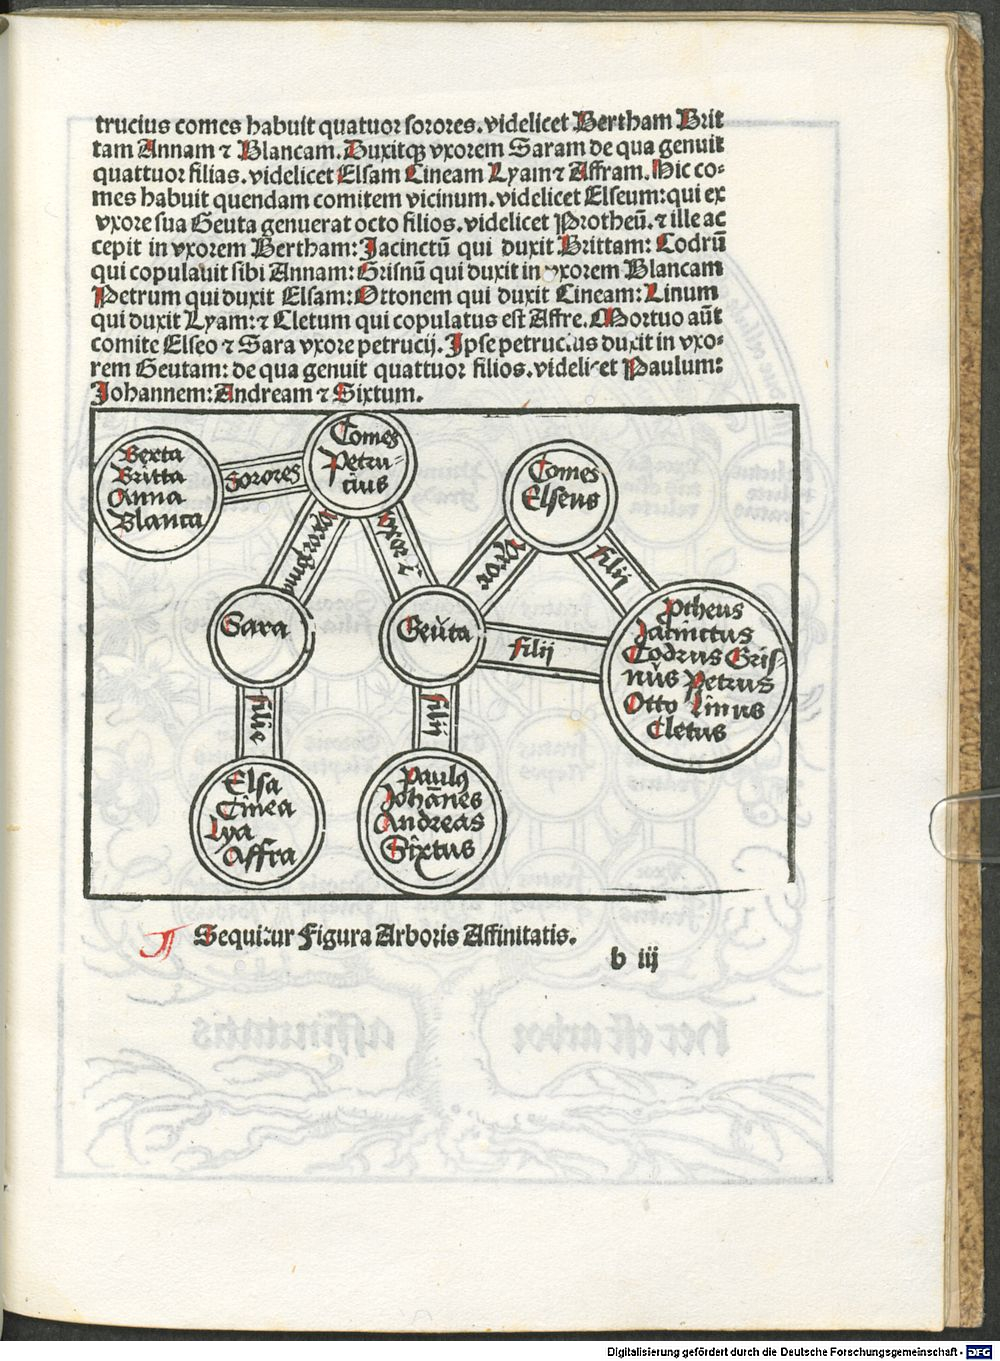 trucius comes habuit quatuor sorores. videlicet Bertham Brit
tam Annam ⁊ Blancam. Duxitqꝫ vxorem Saram de qua genuit
quattuor filias. videlicet Elsam Cineam Lyam ⁊ Affram. Hic co-
mes habuit quendam comitem vicinum. videlicet Elseum: qui ex
vxore sua Geuta genuerat octo filios. videlicet Protheū. ⁊ ille ac
cepit in vxorem Bertham: Jacinctū qui duxit Brittam: Codrū
qui copulauit sibi Annam: Grisnū qui duxit in vxorem Blancam
Petrum qui duxit Elsam: Ottonem qui duxit Cineam: Linum
qui duxit Lyam: ⁊ Cletum qui copulatus est Affre. Mortuo aūt
comite Elseo ⁊ Sara vxore petrucij. Ipse petrucius duxit in vxo-
rem Geutam: de qua genuit quattuor filios. videlicet Paulum:
Johannem: Andream ⁊ Sixtum.
Berta
Britta
Anna
Blanca
sorores
Comes
Petru
cius
Comes
Elseus
vxor
vxor
filij
Sara
Geuta
filij
Ptheus
Jacinctus
Codrus Gris
nus Petrus
Otto Linus
Cletus
filie
filij
Elsa
Cinea
Lya
Affra
Paulꝰ
Johānes
Andreas
Sixtus
Sequitur Figura Arboris Affinitatis.
b iij
Digitalisierung gefördert durch die Deutsche Forschungsgemeinschaft - DFG